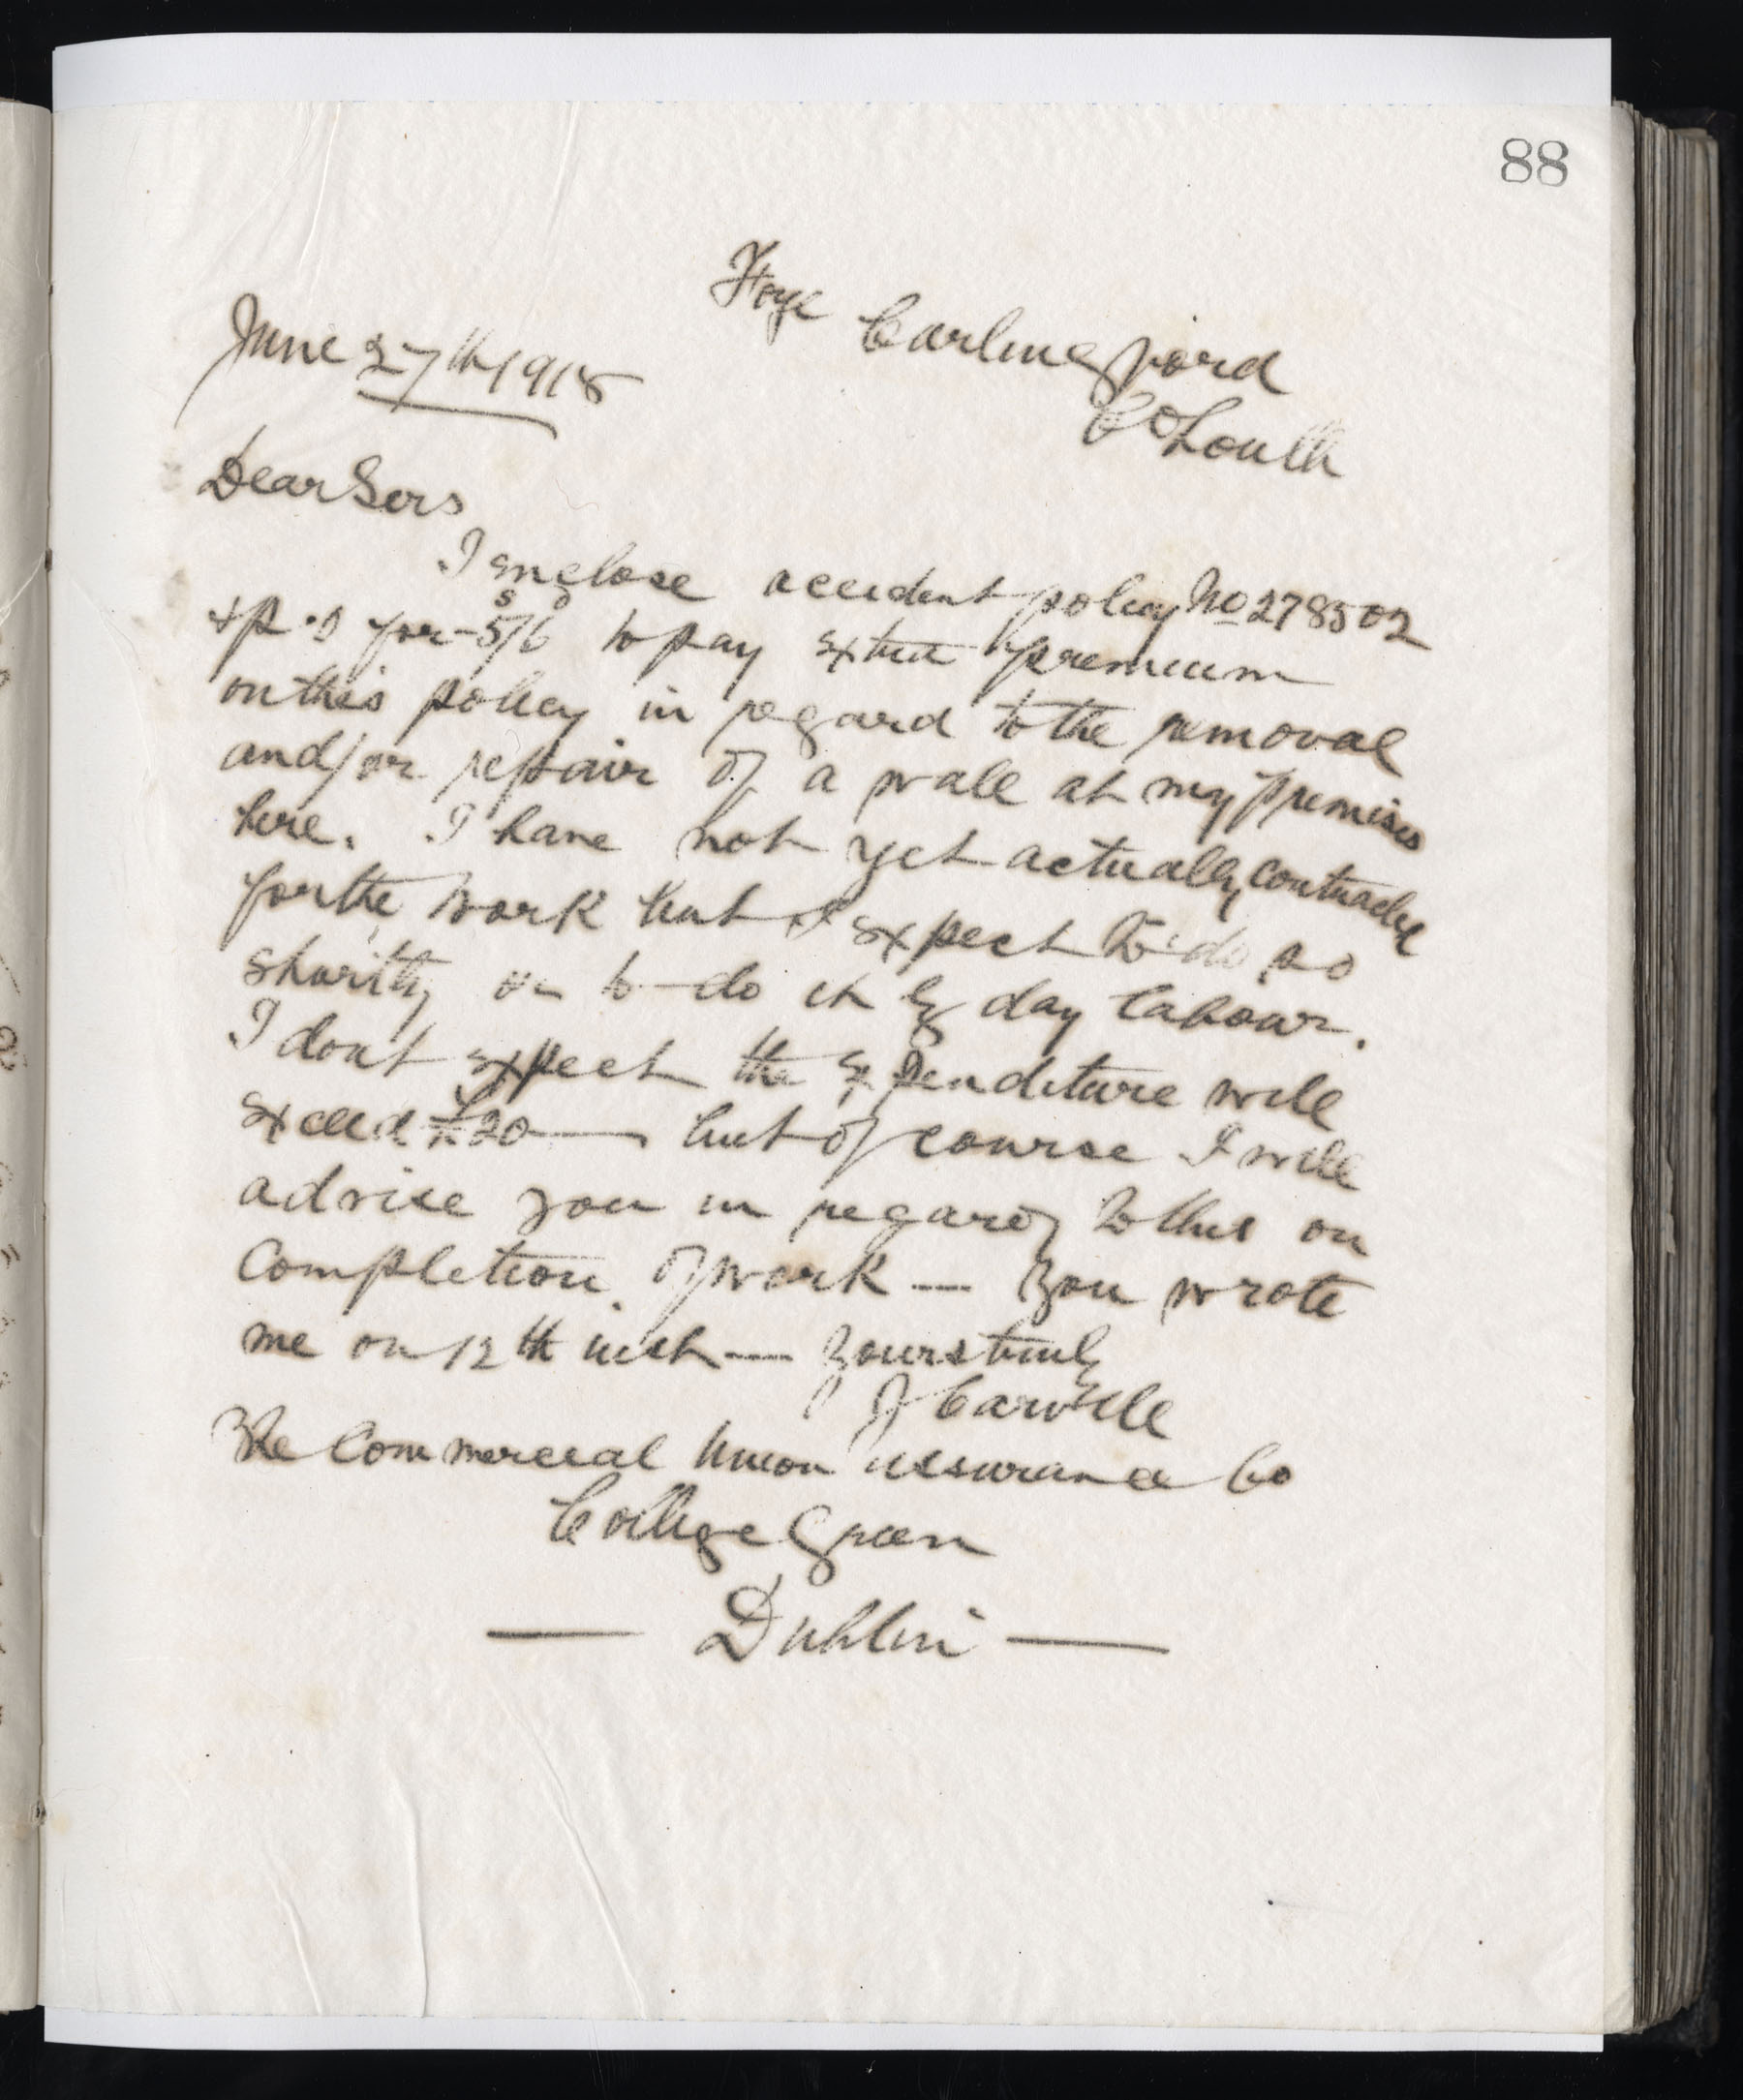 88
Foye Carlingford
June 27th 1918
Co Louth
Dear Sirs
I enclose accident policy No 278502
+ p.o for 5s/6d to pay extra premium
on this policy in regard to the removal
and/or repair of a wall at my premises
here. I have not yet actually contracted
for the work but I expect to do so
shortly or to do it by day labour.
I dont expect the expenditure will
exceed £20 — but of course I will
advise you in regard to this on
completion of work — You wrote
me on 12th inst — Yours truly
J Carvill
The Commercial Union Assurance Co
College Green
— Dublin —